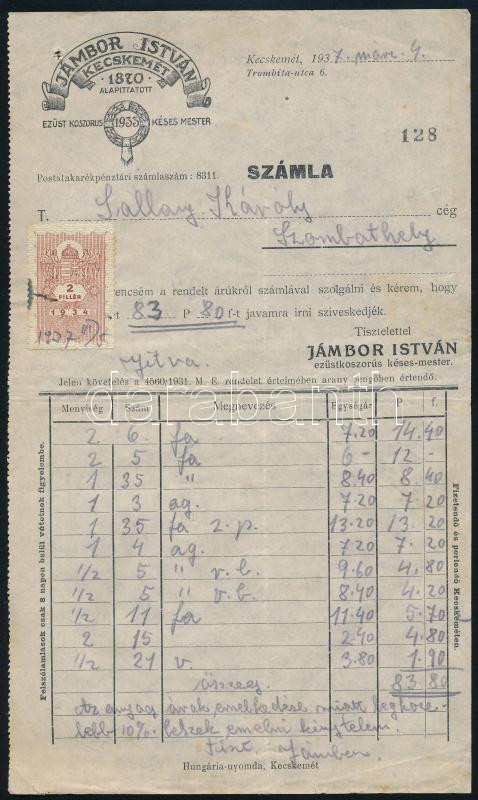 JÁMBOR ISTVÁN
KECSKEMÉT
1870
ALAPITTATOTT
EZÜST KOSZORUS 1933 KÉSES MESTER
Kecskemét, 1937 marc. 4.
Trombita-utca 6.
128
Postatakarékpénztári számlaszám : 8311.
SZÁMLA
T. Sallay Károly cég
Szombathely
2
FILLÉR
1934
1937
rencsém a rendelt árúkról számlával szolgálni és kérem, hogy
t 83 P 80 f-t javamra irni sziveskedjék.
Tisztelettel
JÁMBOR ISTVÁN
ezüstkoszorús késes-mester.
nyitva.
Jelen követelés a 4560/1931. M. E. rendelet értelmében arany pingőben értendő.
Menyiség Szám Megnevezés Egységár P. f.
2 6 fa 7.20 14.40
2 5 fa 6- 12 -
1 35 " 8.40 8.40
1 3 ag. 7.20 7.20
1 35 fa 2. p. 13.20 13.20
1 4 ag. 7.20 7.20
1/2 5 " v. b. 9.60 4.80
1/2 5 " v. b. 8.40 4.20
1/2 11 fa 11.40 5.70
2 15 2.40 4.80
1/2 21 v. 3.80 1.90
összeg. 83.80
Az anyag árak emelkedése miatt legköze-
lebb 10% leszek emelni kénytelen.
Tiszt. Jámbor.
Felszólamlások csak 8 napon belül vétetnek figyelembe.
Fizetendő és perlendő Kecskeméten.
Hungária-nyomda, Kecskemét
darabanth.com